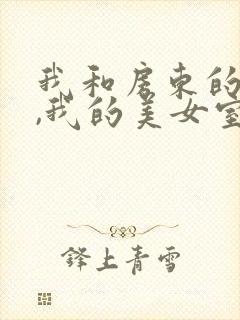 我和房东的
,我的美女室
铎上青雪